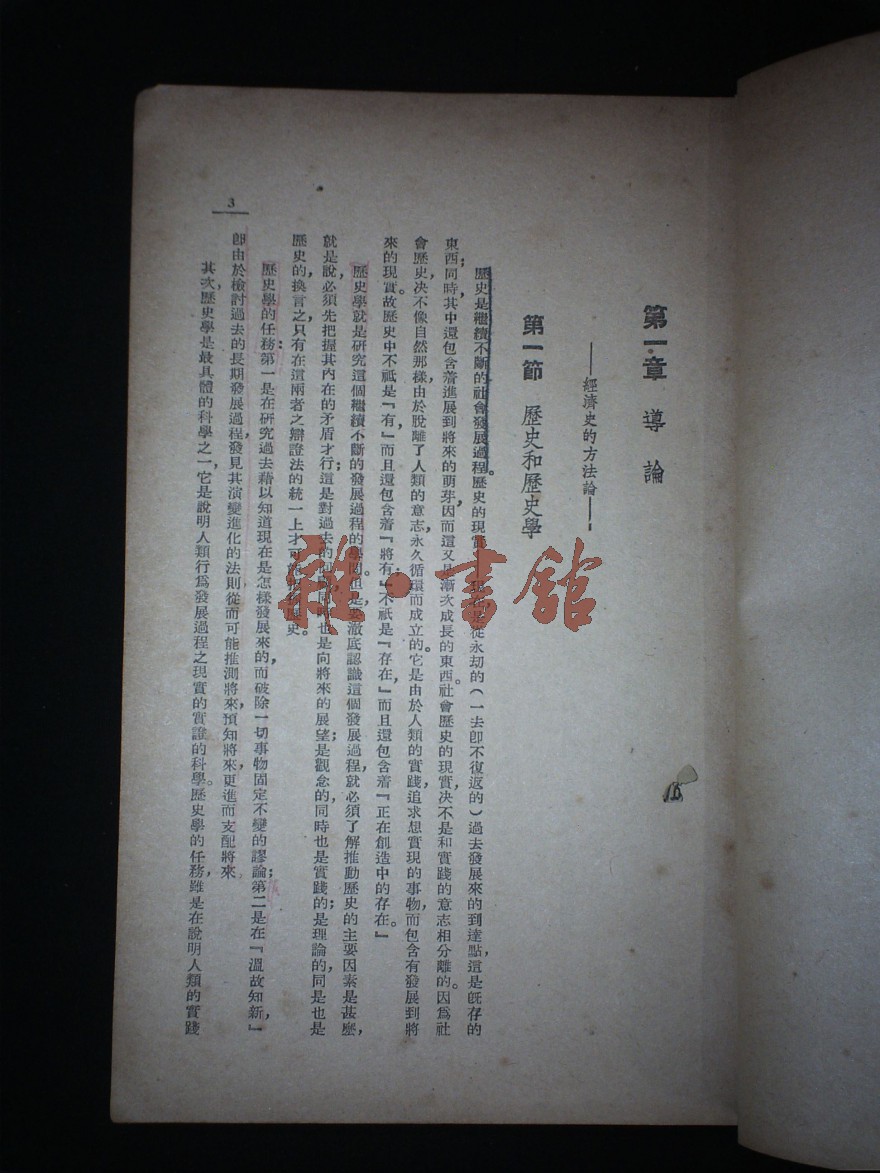 第一章 導論
——經濟史的方法論——
第一節 歷史和歷史學
歷史是繼續不斷的社會發展過程。歷史的現實，從永刧的（一去卽不復返的）過去發展來的到達點，這是旣存的
東西；同時，其中還包含着進展到將來的萌芽，因而這又是漸次成長的東西。社會歷史的現實，決不是和實踐的意志相分離的。因爲社
會歷史決不像自然那樣，由於脫離了人類的意志，永久循環而成立的。它是由於人類的實踐，追求想實現的事物，而包含有發展到將
來的現實。故歷史中不祇是『有』，而且還包含着『將有』；不祇是『存在』，而且還包含着『正在創造中的存在。』
歷史學就是研究這個繼續不斷的發展過程的學問。但是要澈底認識這個發展過程，就必須了解推動歷史的主要因素是甚麽，
就是說，必須先把握其內在的矛盾才行；這是對過去的同時也是向將來的展望；是觀念的，同時也是實踐的；是理論的，同是也是
歷史的，換言之，只有在這兩者之辯證法的統一上才可能史。
歷史學的任務：第一是在研究過去，藉以知道現在是怎樣發展來的，而破除一切事物固定不變的謬論；第二是在『溫故知新，』
卽由於檢討過去的長期發展過程，發見其演變進化的法則，從而可能推測將來，預知將來，更進而支配將來
其次，歷史學是最具體的科學之一，它是說明人類行爲發展過程之現實的實證的科學。歷史學的任務，雖是在說明人類的實踐
3
雜·書館